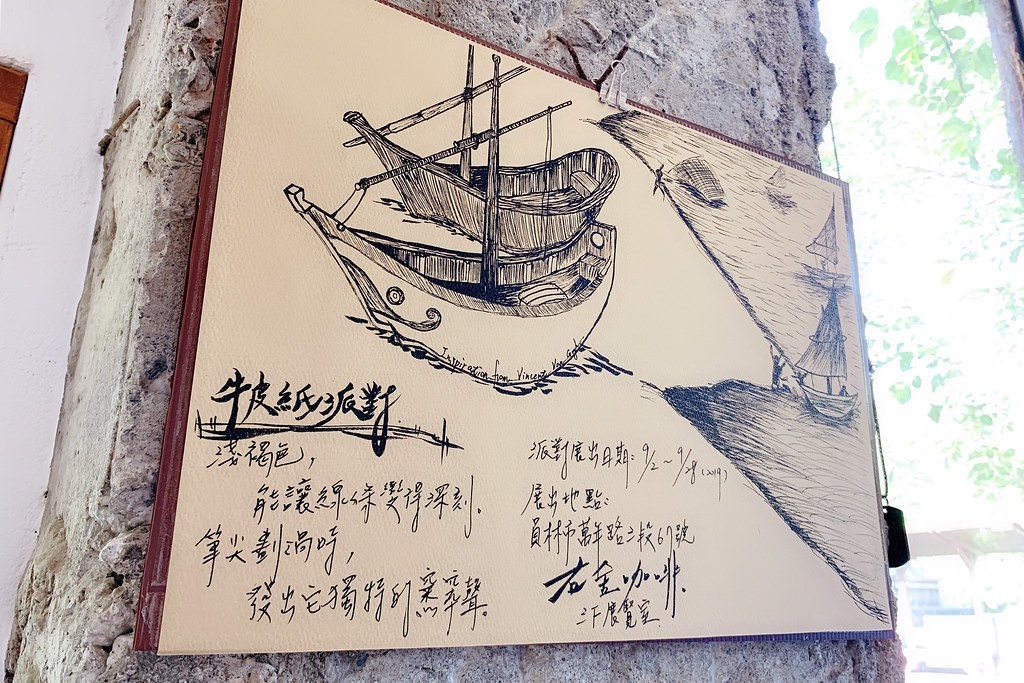 Inspiration from Vincent Van Gogh
牛皮紙派對
淺褐色，
能讓線條變得深刻。
筆尖劃過時，
發出它獨特的窸窣聲。
派對展出日期：9/2～9/28（2019）
展出地點：
員林市萬年路三段61號
右舍咖啡.
3F展覽室